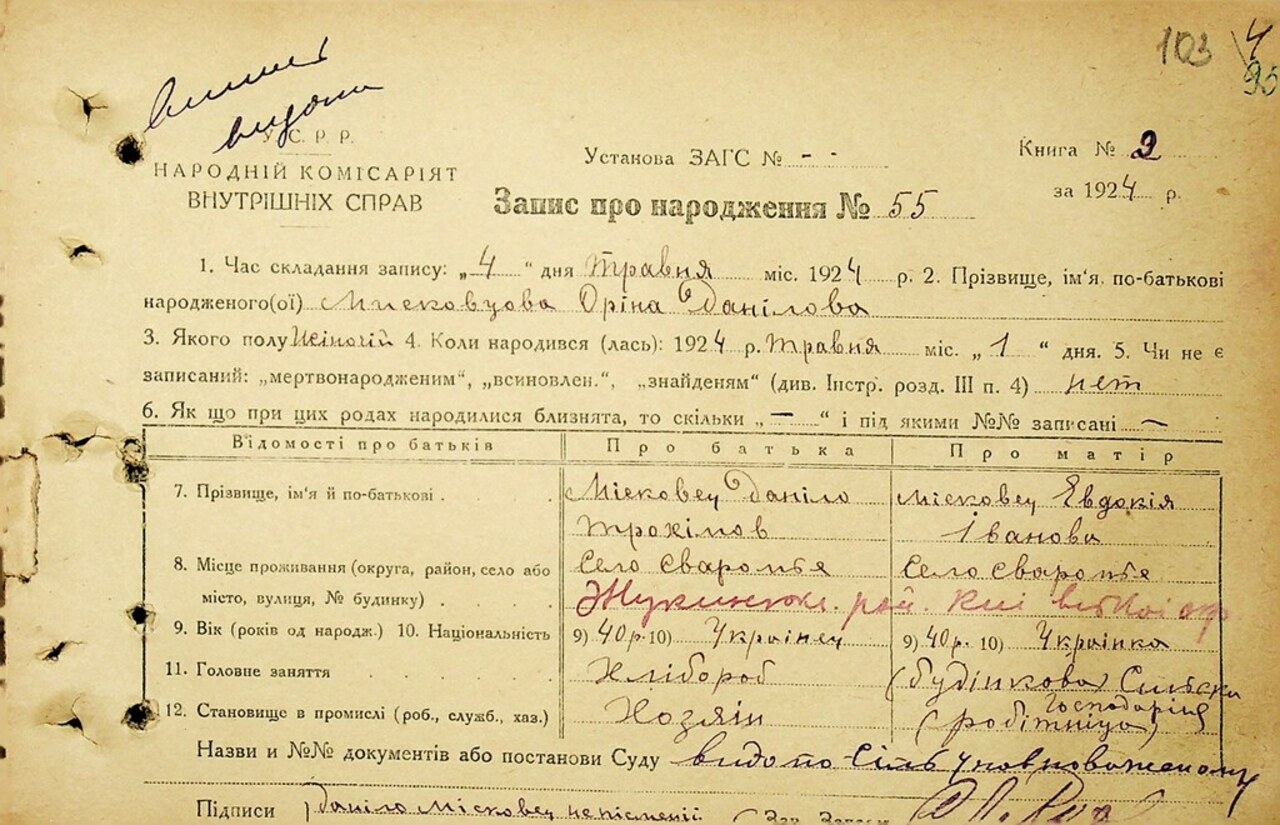 103 4
95
виписъ
видани
У. С. Р. Р.
НАРОДНІЙ КОМІСАРІЯТ
ВНУТРІШНІХ СПРАВ
Установа ЗАГС № - -
Книга № 2
за 1924 р.
Запис про народження № 55
1. Час складання запису: „4“ дня Травня міс. 1924 р. 2. Прізвище, ім'я, по-батькові
народженого(ої) Мисковцова Оріна Данілова
3. Якого полу Жіночій 4. Коли народився (лась): 1924 р. Травня міс. „1“ дня. 5. Чи не є
записаний: „мертвонародженим“, „всиновлен.“, „знайденям“ (див. Інстр. розд. III п. 4) нет
6. Як що при цих родах народилися близнята, то скільки „—“ і під якими №№ записані —
Відомості про батьків Про батька Про матір
7. Прізвище, ім'я й по-батькові Місковец Даніло Місковец Евдокія
Трохімов Іванова
8. Місце проживання (округа, район, село або Село Сваромье Село Сваромье
місто, вулиця, № будинку) Жукинське рай. Київської окр
9. Вік (років од народж.) 10. Національність 9) 40 р. 10) Украінец 9) 40 р. 10) Украінка
11. Головне заняття Хлібороб (будінкова) Сильськ
господаріця
12. Становище в промислі (роб., служб., хаз.) Хозяін (робітніца)
Назви и №№ документів або постанови Суду видо по Сіль уновноваженому
Підписи Даніло Місковец неписменій Зав. Записи